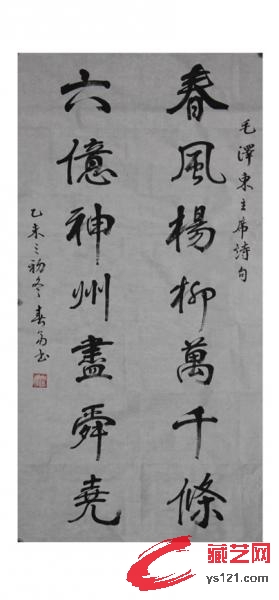 毛澤東主席詩句
春風楊柳萬千條
六億神州盡舜堯
乙未之初冬春勇书
藏艺网
ys121.com